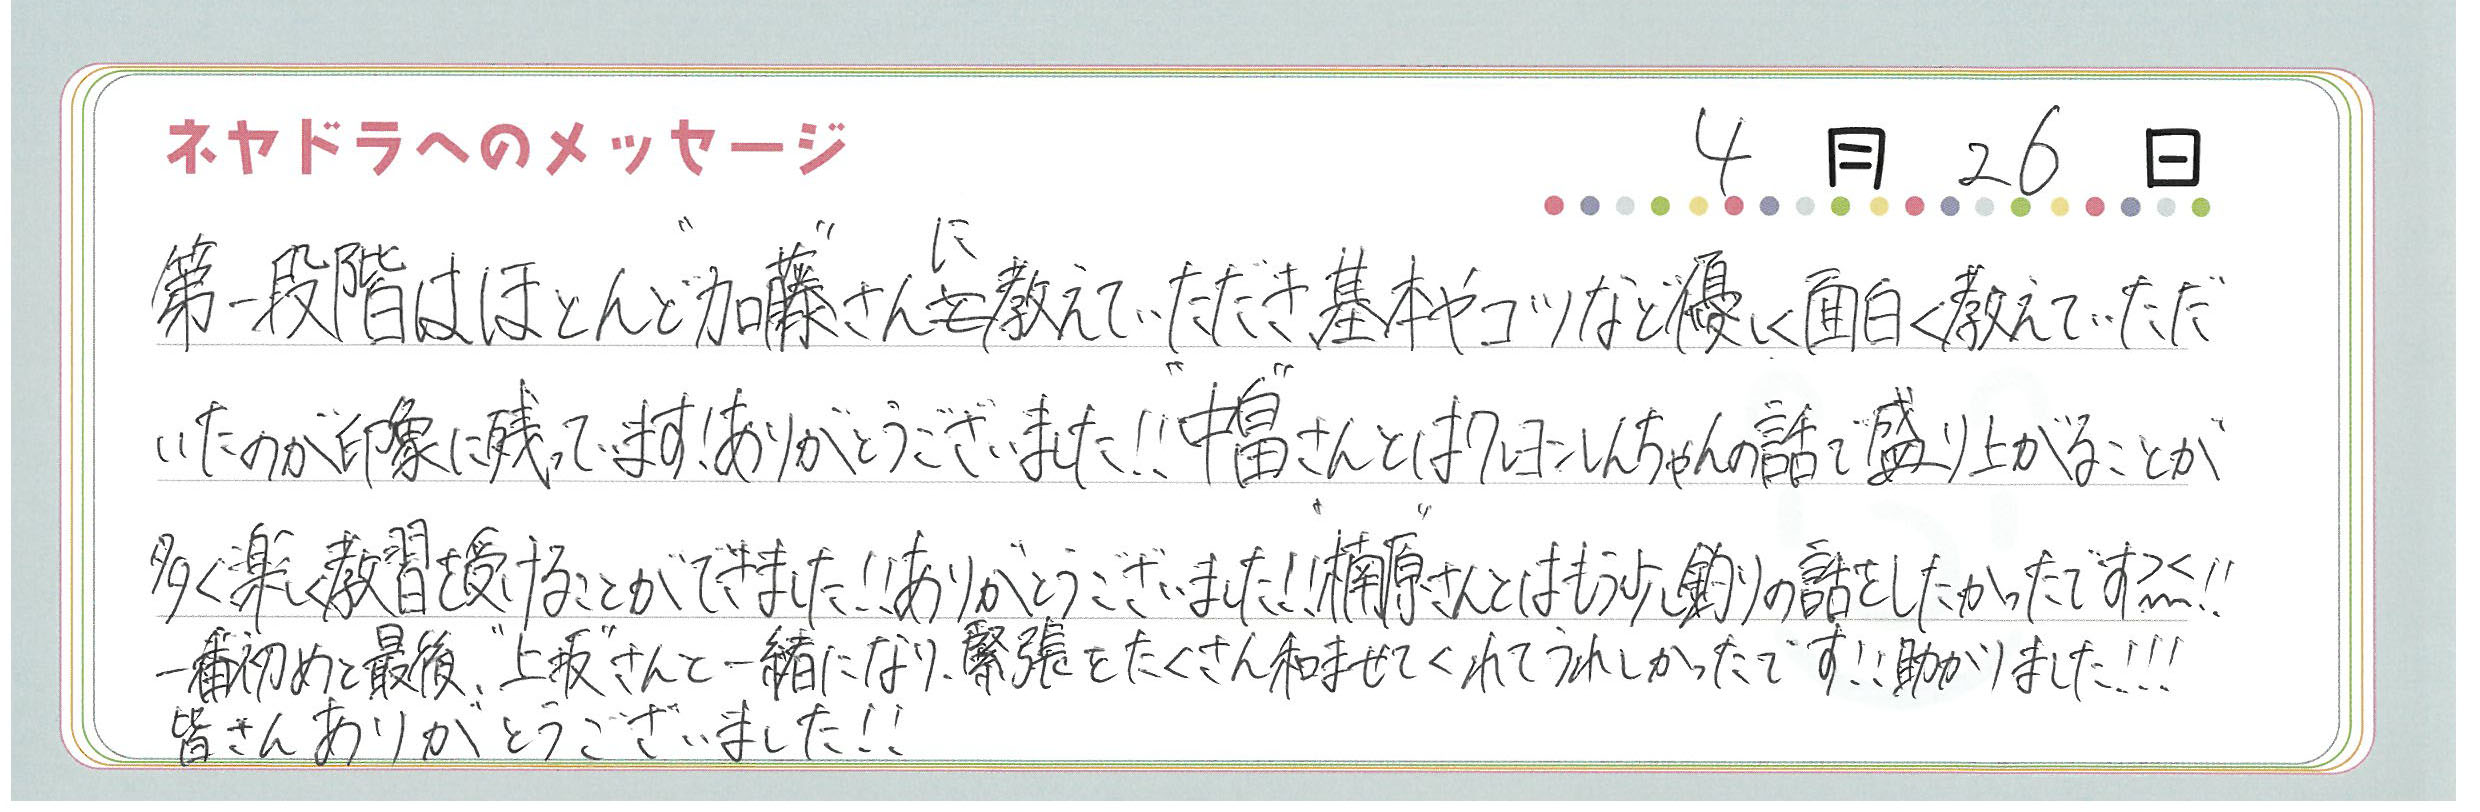 ネヤドラへのメッセージ
4月26日
第一段階はほとんど"加藤"さんに教えていただき、基本やコツなど優しく面白く教えていただ
いたのが印象に残っています!ありがとうございました!!"中畠"さんとはクレヨンしんちゃんの話で盛り上がることが
多く楽しく教習を受けることができました!!ありがとうございました!!"楠原"さんとはもう少し釣りの話をしたかったです!!
一番初めと最後、"上坂"さんと一緒になり、緊張をたくさん和ませてくれてうれしかったです!!助かりました!!!
皆さんありがとうございました!!